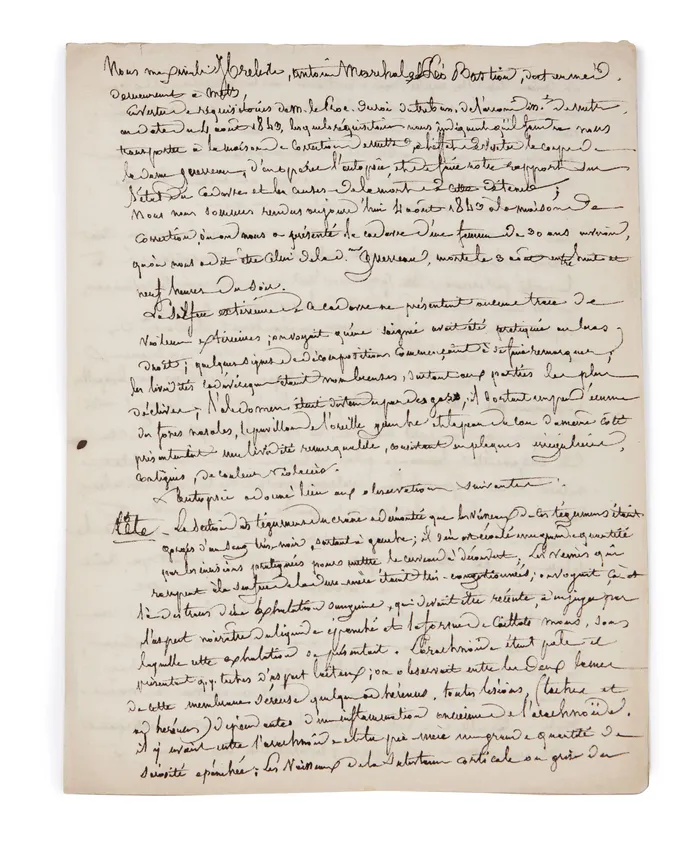 Nous soussignés, antoine Marechal et Léo Bastion, doct. en med.
demeurant à Metz,
En vertu de réquisitoires de M. le Proc. du roi du trib. de 1ère inst. de metz
en date du 4 août 1843, lesquels réquisitoires nous indiquent qu'il faudra nous
transporter à la maison de Correction de metz à l'effet de visiter le corps de
la dame guerreau, d'en opérer l'autopsie, et de faire notre rapport sur
l'état du cadavre et les causes de la mort de cette détenue ;
Nous nous sommes rendus aujourd'hui 4 août 1843 à la maison de
correction où on nous a présenté le cadavre d'une femme de 30 ans environ,
qu'on nous a dit être celui de la de. guerreau, morte le 3 août entre huit et
neuf heures du soir.
La surface extérieure de ce cadavre ne présentent aucune trace de
violences extérieures ; on voyait qu'une saignée avait été pratiquée au bras
droit ; quelques signes de décompositions commençaient à se faire remarquer ;
les lividités cadavériques étaient nombreuses, surtout aux parties les plus
déclives ; l'abdomen était distendu par des gaz, il sortait un peu d'écume
des fosses nasales, le pavillon de l'oreille gauche et la peau du cou du même côté
présentaient une lividité remarquable, consistant en plaques irrégulières,
contigues, de couleur violacée.
L'autopsie a donné lieu aux observations suivantes :
tête - La section des tégumens du crâne a démontré que les vaisseaux de ces tégumens étaient
gorgés d'un sang très-noir, surtout à gauche ; il s'en est écoulé une grande quantité
par les incisions pratiquées pour mettre le cerveau à découvert. Les veines qui
rampent à la surface de la dure-mère étaient très-congestionnées ; on voyait çà et
là des traces d'une exhalation sanguine, qui devait être récente, à en juger par
l'aspect noirâtre du liquide épanché et la forme de caillots mous, sous
laquelle cette exhalation se présentait. L'arachnoïde était pâle et
présentait q.q. taches d'aspect laiteux ; on observait entre les deux lames
de cette membrane séreuse quelques adhérences. toutes lésions, (taches et
adhérences) dépendantes d'une inflammation ancienne de l'arachnoïde.
il y avait entre l'arachnoïde et la pie mère une grande quantité de
sérosité épanchée ; Les Vaisseaux de la substance corticale ou grise du